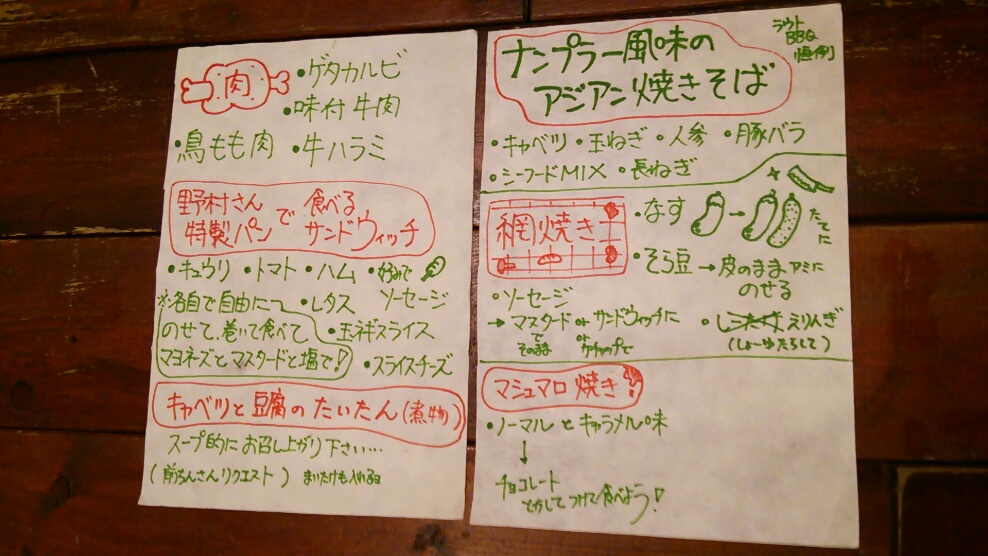 肉
・ゲタカルビ
・味付牛肉
・鳥もも肉 ・牛ハラミ
野村さん
特製パンで 食べる
サンドウィッチ
・キュウリ ・トマト ・ハム ・好みで
ソーセージ
※各自で自由に
のせて、巻いて食べて
マヨネーズとマスタードと塩で!
・レタス
・玉ネギスライス
・スライスチーズ
キャベツと豆腐のたいたん(煮物)
スープ的にお召し上がり下さい…
(前ちんさんリクエスト) まいたけも入れるヨ
ナンプラー風味の
アジアン焼きそば
BBQ
恒例
・キャベツ ・玉ねぎ ・人参 ・豚バラ
・シーフードMIX ・長ねぎ
網焼き
・なす
たてに
・そら豆→皮のままアミに
のせる
・ソーセージ
→マスタード or サンドウィッチに
で
そのまま
or
ケチャップで
・しいたけ えりんぎ
(しょーゆたらして)
マシュマロ焼き
・ノーマルとキャラメル味
↓
チョコレート
とかしてつけて食べよう!